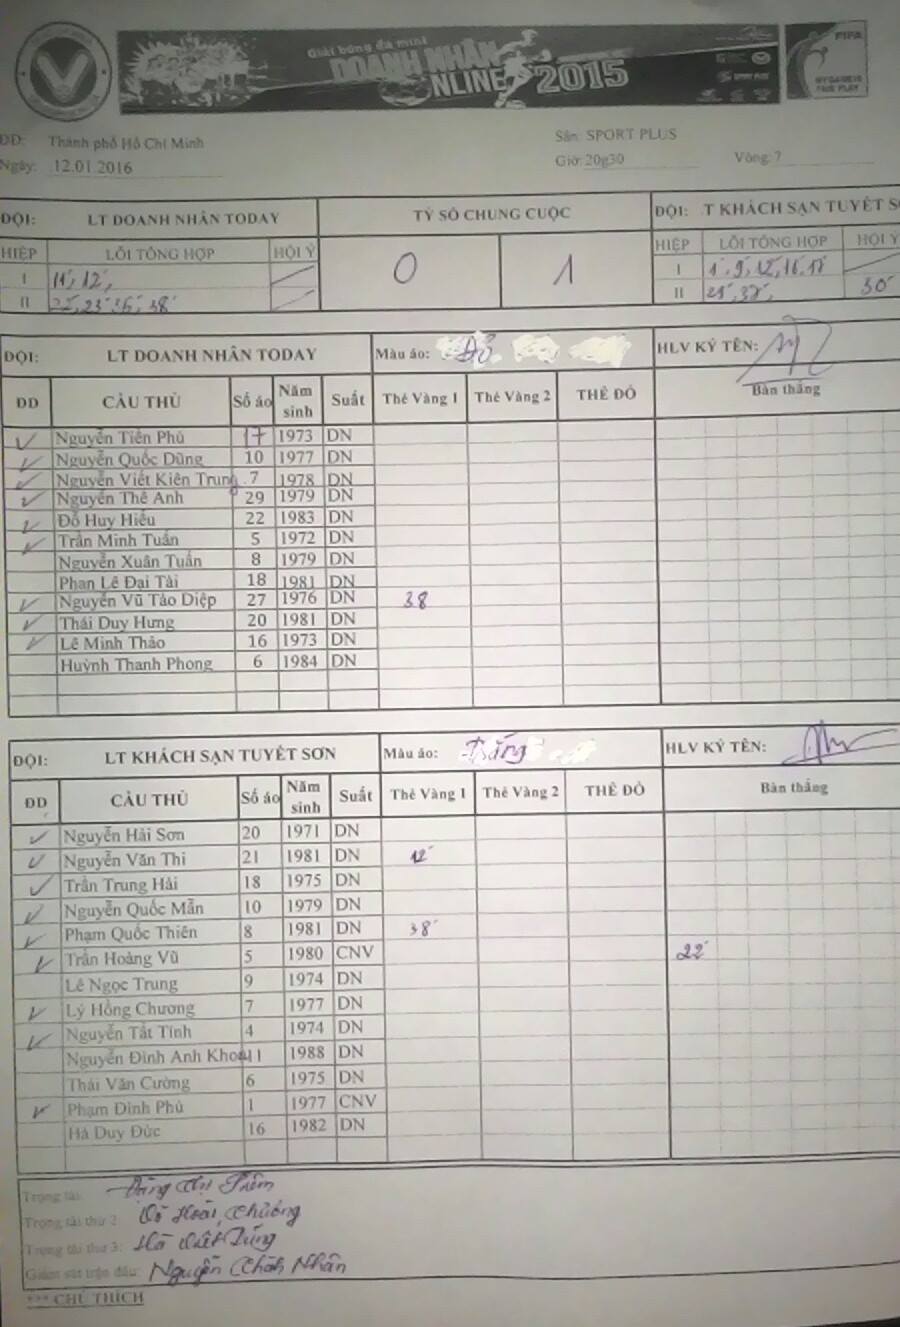 Giải bóng đá mini
DOANH NHÂN
NLINE 2015
FIFA
MY GAME IS
FAIR PLAY
ĐD: Thành phố Hồ Chí Minh
Sân: SPORT PLUS
Ngày: 12.01.2016
Giờ: 20g30 Vòng: 7
ĐỘI: LT DOANH NHÂN TODAY TỶ SỐ CHUNG CUỘC ĐỘI: T KHÁCH SẠN TUYẾT S
HIỆP LỖI TỔNG HỢP HỘI Ý 0 1 HIỆP LỖI TỔNG HỢP HỘI Ý
I 11', 12', I
II 23' 36' 38' II 30'
ĐỘI: LT DOANH NHÂN TODAY Màu áo: Đỏ HLV KÝ TÊN:
ĐD CẦU THỦ Số áo Năm sinh Suất Thẻ Vàng 1 Thẻ Vàng 2 THẺ ĐỎ Bàn thắng
Nguyễn Tiến Phú 17 1973 DN
Nguyễn Quốc Dũng 10 1977 DN
Nguyễn Viết Kiên Trung 7 1978 DN
Nguyễn Thế Anh 29 1979 DN
Đỗ Huy Hiếu 22 1983 DN
Trần Minh Tuấn 5 1972 DN
Nguyễn Xuân Tuấn 8 1979 DN
Phan Lê Đại Tài 18 1981 DN
Nguyễn Vũ Tảo Diệp 27 1976 DN 38
Thái Duy Hưng 20 1981 DN
Lê Minh Thảo 16 1973 DN
Huỳnh Thanh Phong 6 1984 DN
ĐỘI: LT KHÁCH SẠN TUYẾT SƠN Màu áo: Trắng HLV KÝ TÊN:
ĐD CẦU THỦ Số áo Năm sinh Suất Thẻ Vàng 1 Thẻ Vàng 2 THẺ ĐỎ Bàn thắng
Nguyễn Hải Sơn 20 1971 DN
Nguyễn Văn Thi 21 1981 DN 12'
Trần Trung Hải 18 1975 DN
Nguyễn Quốc Mẫn 10 1979 DN
Phạm Quốc Thiên 8 1981 DN 38'
Trần Hoàng Vũ 5 1980 CNV 22'
Lê Ngọc Trung 9 1974 DN
Lý Hồng Chương 7 1977 DN
Nguyễn Tất Tính 4 1974 DN
Nguyễn Đình Anh Khoa 11 1988 DN
Thái Văn Cường 6 1975 DN
Phạm Đình Phú 1 1977 CNV
Hà Duy Đức 16 1982 DN
Trọng tài:
Trọng tài thứ 2:
Trọng tài thứ 3:
Giám sát trận đấu: Nguyễn Nhân
*** CHÚ THÍCH